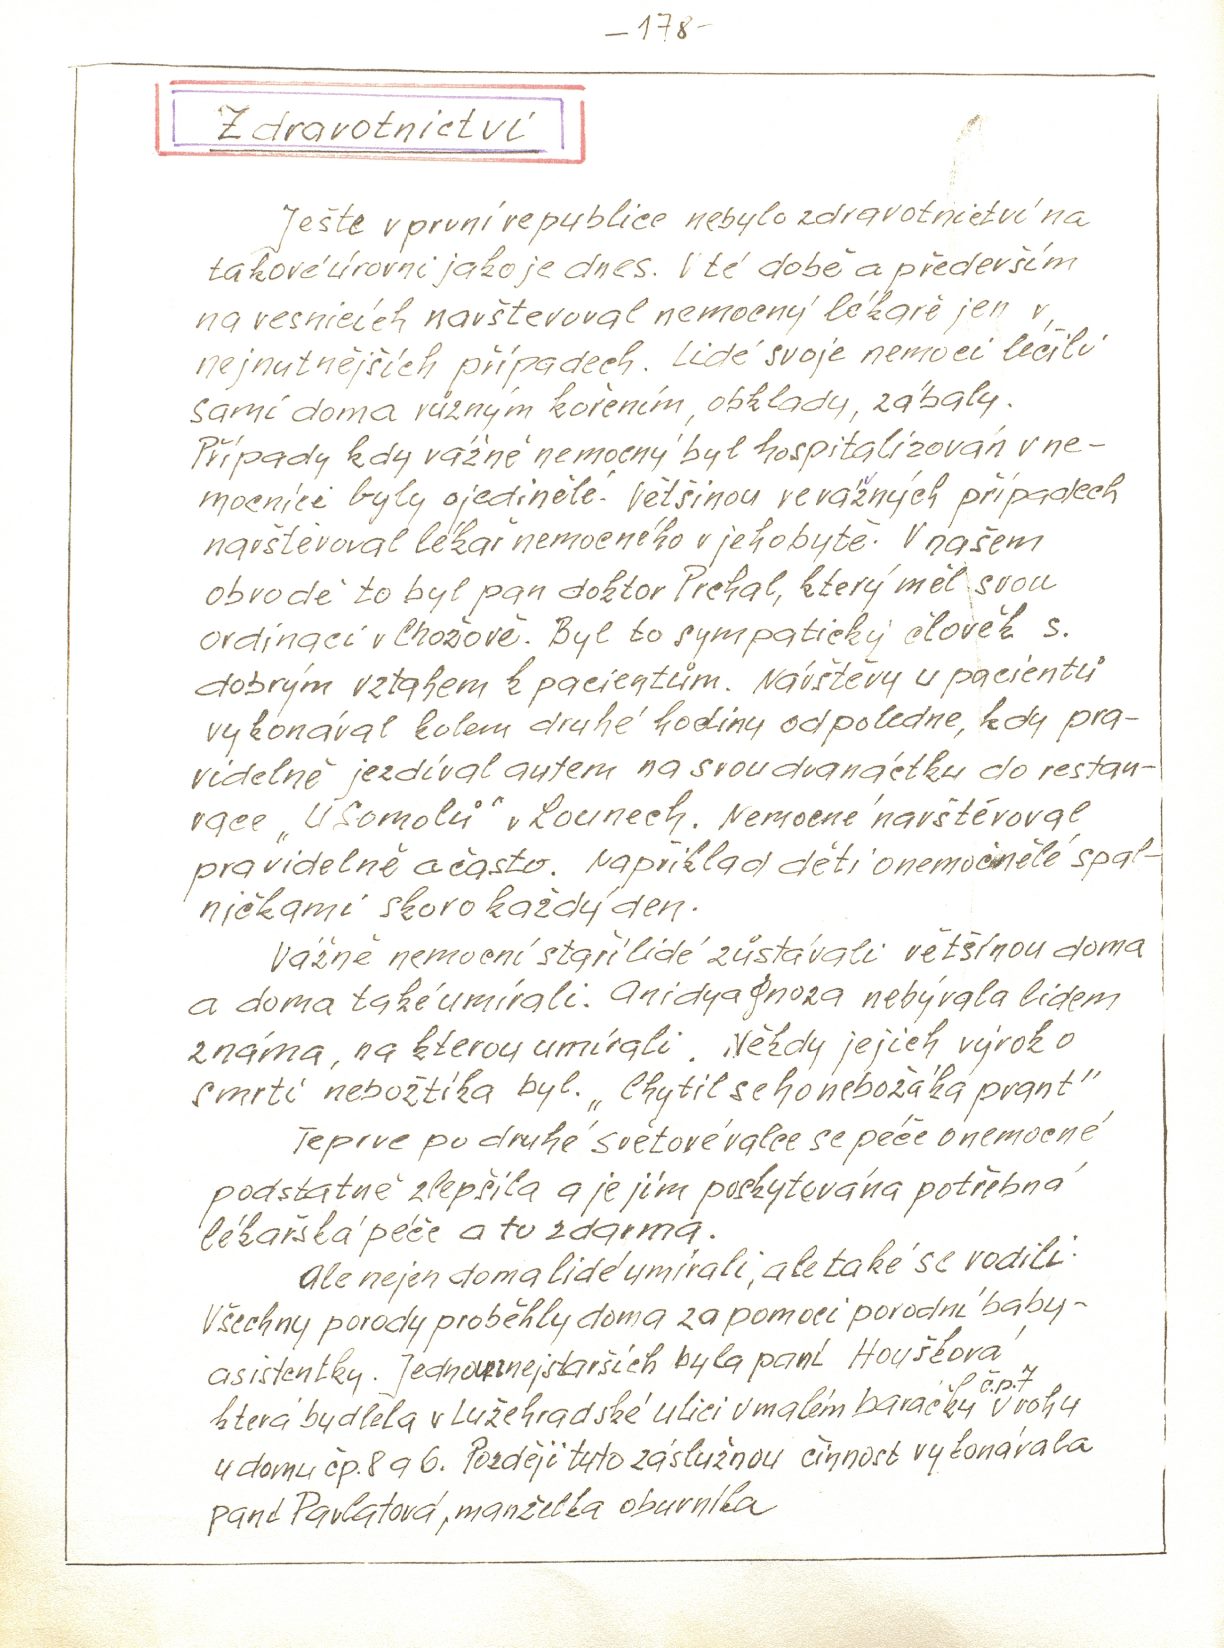 -178-
Zdravotnictví
Ješte v první republice nebylo zdravotnictví na
takové úrovni jako je dnes. V té době a především
na vesnicích navštevoval nemocný lékaře jen v
nejnutnějších případech. Lidé svoje nemoci léčili
sami doma různým kořením, obklady, zábaly.
Případy kdy vážně nemocný byl hospitalizován v ne-
mocnici byly ojedinělé. Většinou ve vážných případech
navštěvoval lékař nemocného v jeho bytě. V našem
obvodě to byl pan doktor Prchal, který měl svou
ordinaci v Chožově. Byl to sympatický člověk s.
dobrým vztahem k pacientům. Návštěvy u pacientů
vykonával kolem druhé hodiny odpoledne, kdy pra-
videlně jezdíval autem na svou dvanáctku do restau-
race „U Somolů" v Lounech. Nemocné navštěvoval
pravidelně a často. Například děti onemocnělé spal-
ničkami skoro každý den.
Vážně nemocní staří lidé zůstávali většinou doma
a doma také umírali. Ani dyagnoza nebývala lidem
známa, na kterou umírali. Někdy jejich výrok o
smrti nebožtíka byl. „Chytil se ho nebožáka prant"
Teprve po druhé světové válce se péče o nemocné
podstatně zlepšila a je jím poskytována potřebná
lékařská péče a to zdarma.
Ale nejen doma lidé umírali, ale také se rodili.
Všechny porody proběhly doma za pomoci porodní báby-
asistentky. Jednou z nejstarších byla paní Houšková
která bydlela v Lužehradské ulici v malém baráčku č.p.7 v rohu
u domu čp. 8 a 6. Později tuto záslužnou činnost vykonávala
paní Pavlatová, manželka obuvníka